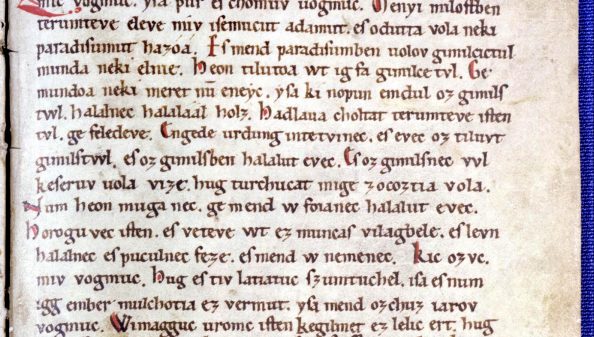 mic vogmuc. yſa pur eſ chomuv uogmuc. Menyi miloſtben
terumteve eleve miv iſemucut adamut. eſ odutta vola neki
paradiſumut hazoa. Eſ mend paradiſumben uolov gimilcictul
munda neki elnie. Heon tilutoa wt ig fa gimilce tvl. Ge
mundoa neki meret nu eneyc. yſa ki nopun emdul oz gimilſ
twl. halalnec halalaal holz. Hadlaua choltat terumteve iſten
tvl. ge feledeve. Engede urdung intetvinec. eſ evec oz tiluvt
gimilſtwl. eſ oz gimilſben halalut evec. Eſ oz gimilſnec vvl
keſeruv uola vize. hug turchucat mige zocoztia vola.
Num heon muga nec. ge mend w foianec halalut evec.
Horogu vec iſten. eſ veteve wt ez muncaſ vilagbele. eſ levn
halalnec eſ puculnec feze. eſ mend w nemenec. Kic ozvc.
miv vogmuc. Hug eſ tiv latiatuc ſzumtuchel. iſa eſ num
igg ember mulchotia ez vermut. yſa mend ozchuz iarov
vogmuc. Wimagguc uromc iſten kegilmet ez lelic ert. hug